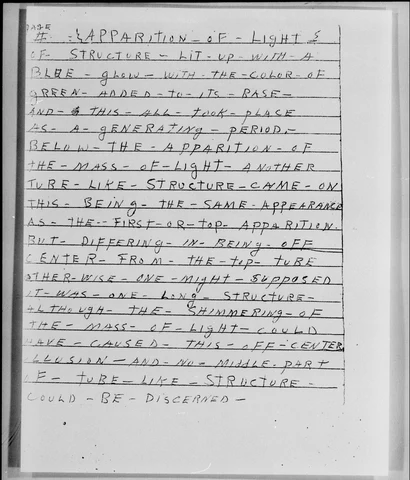 PAGE
#- {APPARITION - OF - LIGHT}
OF - STRUCTURE - LIT - UP - WITH - A
BLUE - GLOW - WITH - THE - COLOR - OF
GREEN - ADDED - TO - ITS - BASE -
AND - THIS - ALL - TOOK - PLASE
AS - A - GENERATING - PERIOD. -
BELOW - THE - APPARITION - OF
THE - MASS - OF - LIGHT - ANOTHER
TUBE - LIKE - STRUCTURE - CAME - ON
THIS - BEING - THE - SAME - APPEARANCE
AS - THE - FIRST - OR - TOP - APPARITION.
BUT - DIFFERING - IN - BEING - OFF
CENTER - FROM - THE - TOP - TUBE
OTHER - WISE - ONE - MIGHT - SUPPOSED
IT - WAS - ONE - LONG - STRUCTURE -
ALTHOUGH - THE - SHIMMERING - OF
THE - MASS - OF - LIGHT - COULD
HAVE - CAUSED - THIS - OFF - CENTER
ILLUSION - AND - NO - MIDDLE - PART
OF - TUBE - LIKE - STRUCTURE -
COULD - BE - DISCERNED -